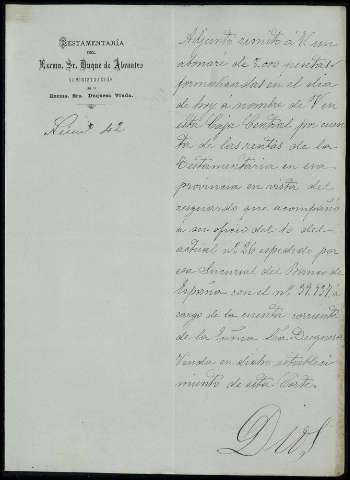 TESTAMENTARÍA
DEL
Excmo. Sr. Duque de Abrantes
ADMINISTRACIÓN
DE LA
Excma. Sra. Duquesa Viuda.
Núm. 42
Adjunto remito á V. un
abonaré de 7.000 pesetas
formalizadas en el dia
de hoy á nombre de V. en
esta Caja Central por cuen
ta de las rentas de la
Testamentaria en esa
provincia en vista del
resguardo que acompañó
á su oficio del 10 del
actual nº 26 expedido por
esa Sucursal del Banco de
España con el nº 37.737 á
cargo de la cuenta corriente
de la Excma. Sra. Duquesa
Viuda en dicho estableci
miento de esta Corte.
Dios